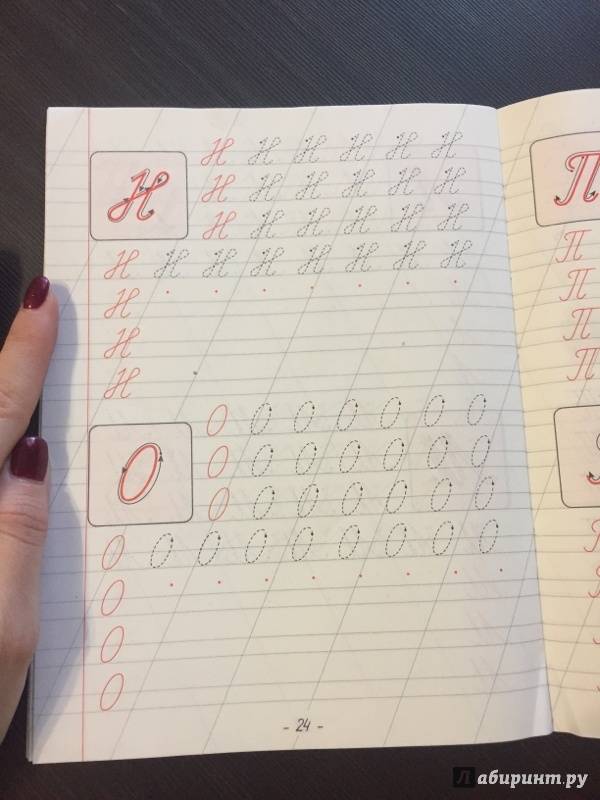 Н
Н Н Н Н Н Н
Н Н Н Н Н Н
Н Н Н Н Н Н
Н Н Н Н Н Н Н Н
Н
Н
Н
О
О О О О О О О
О О О О О О О
О О О О О О О
О О О О О О О О О
О
О
О
- 24 -
П
П
П
П
П
Лабиринт.ру